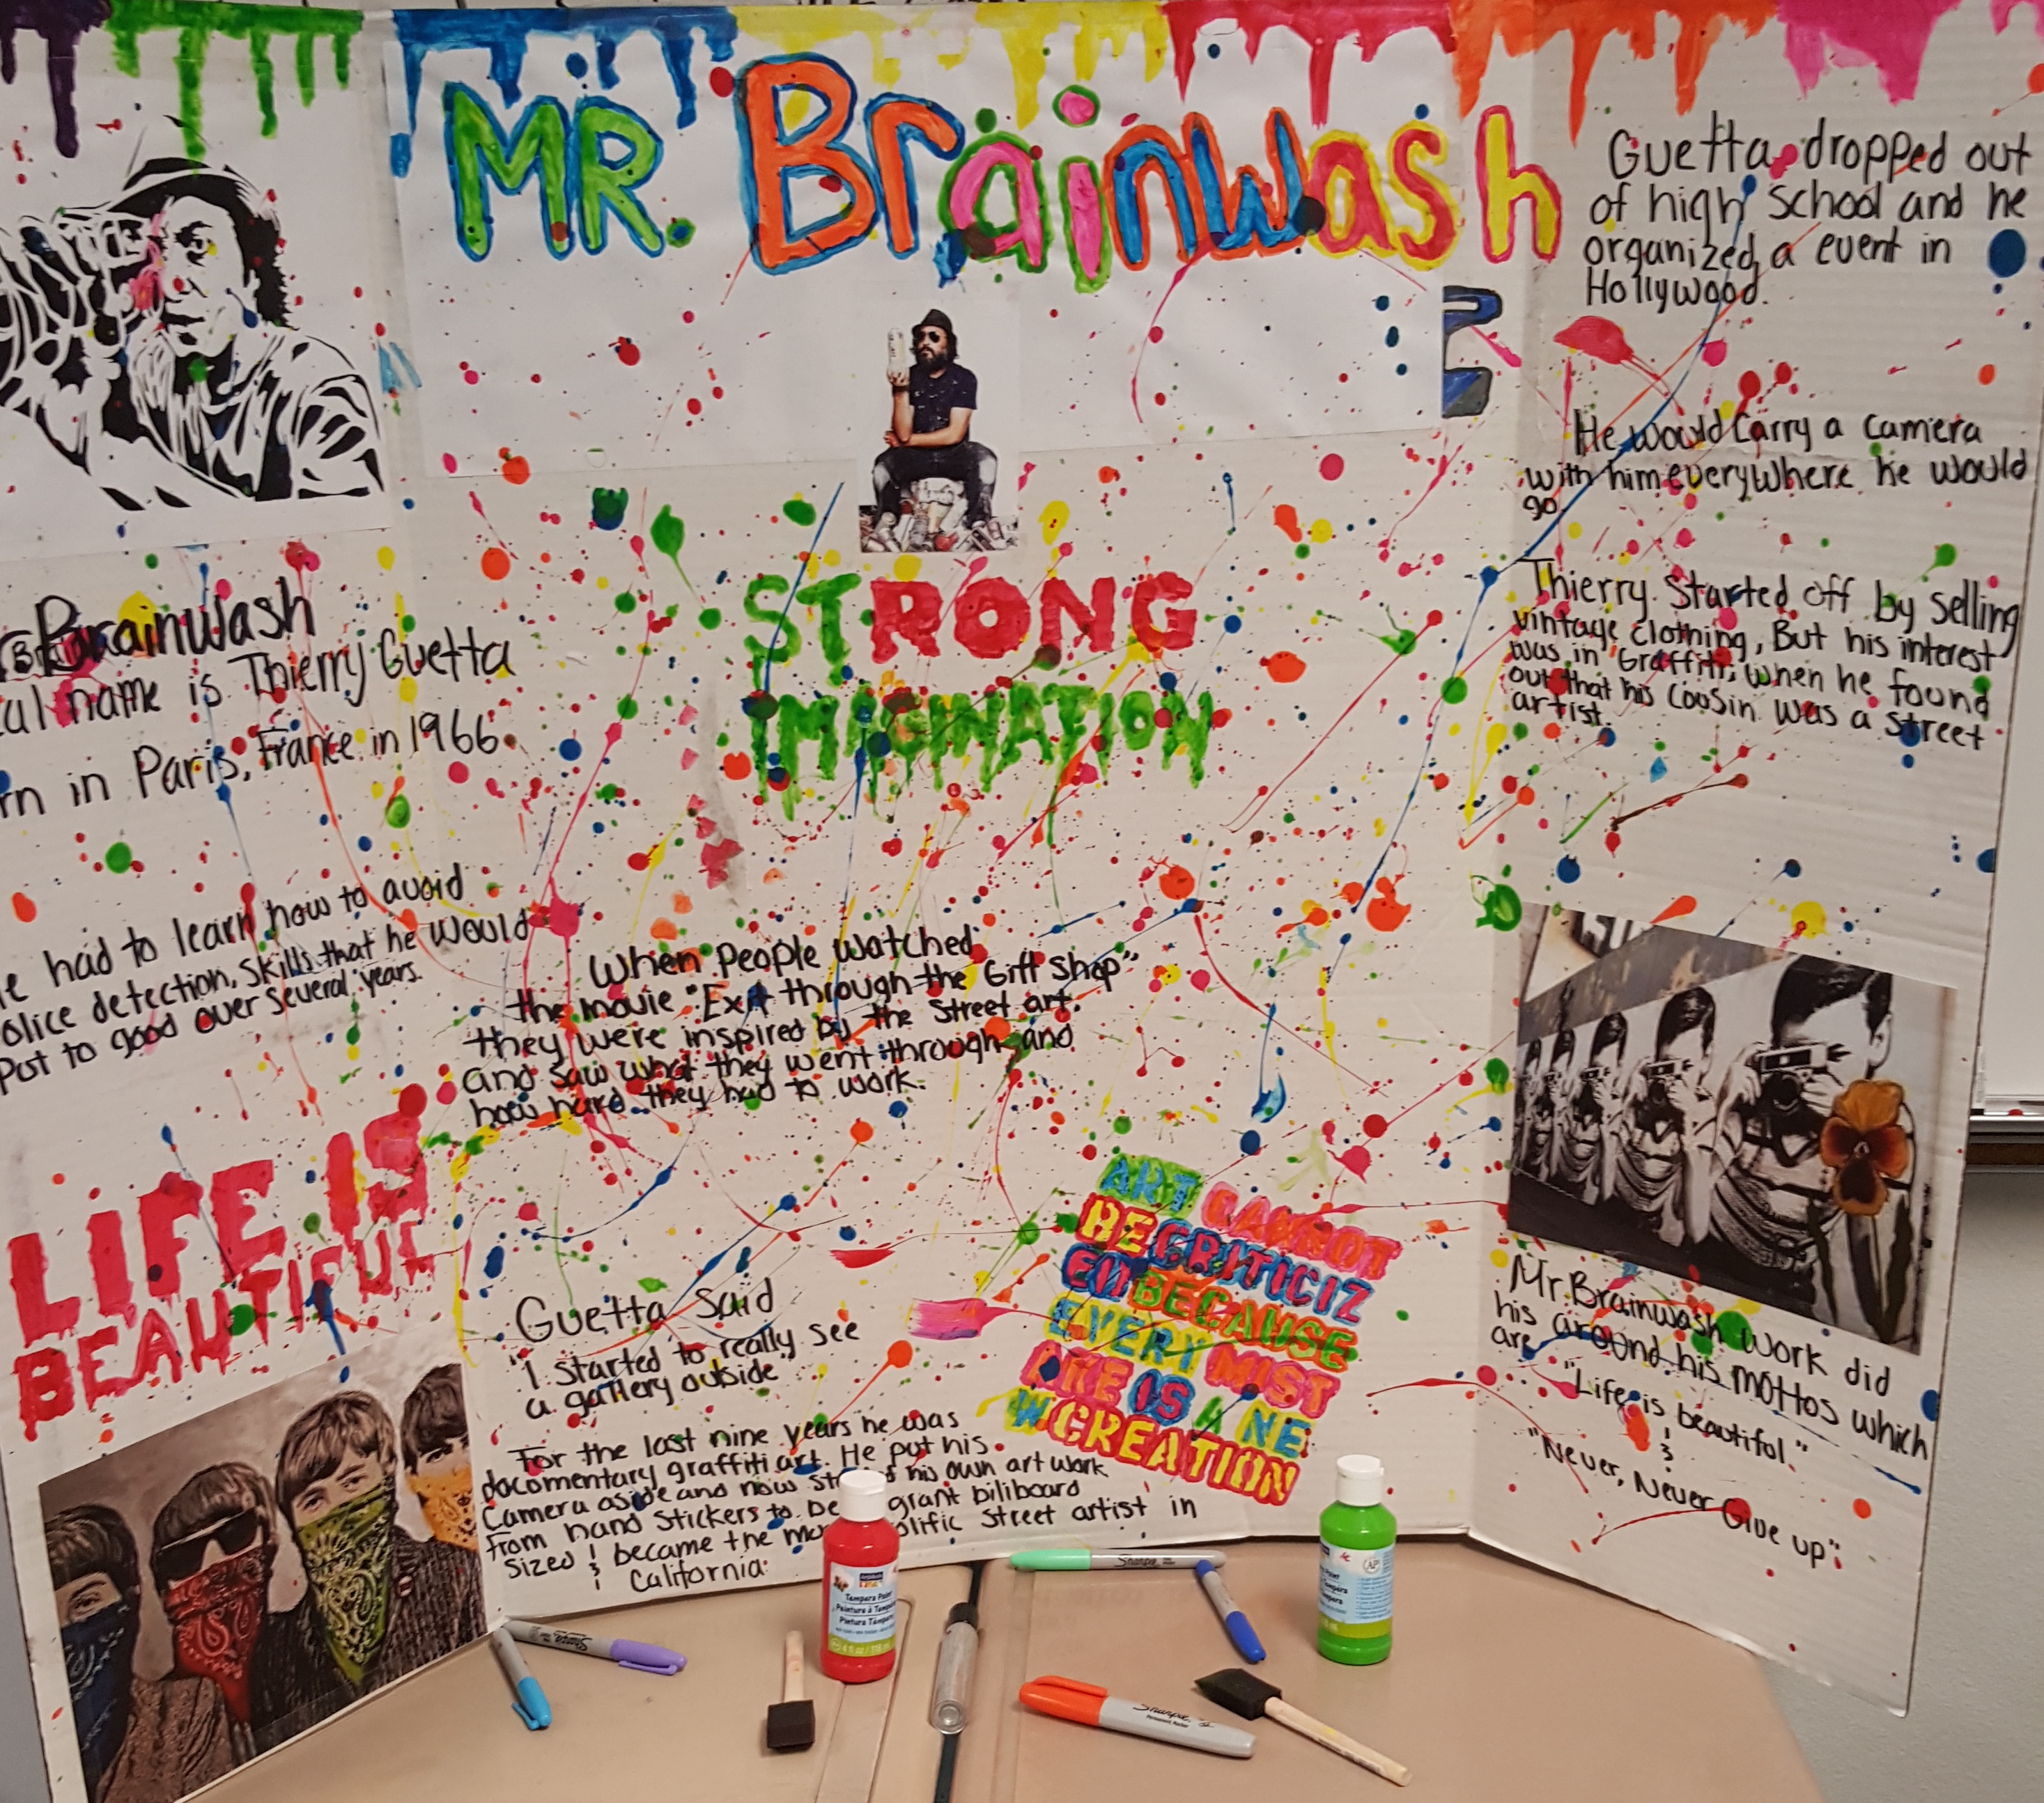 MR. Brainwash
Brainwash
al name is Thierry Guetta
rn in Paris, France in 1966.
e had to learn how to avoid
olice detection, skills that he would
Put to good over several years.
LIFE IS
BEAUTIFUL
STRONG
IMAGINATION
When People watched
the movie "Exit through the Gift Shop"
they were inspired by the street art.
and saw what they went through and
how hard they had to work.
Guetta said
"I started to really see
a gallery outside
For the last nine years he was
documentary graffiti art. He put his
Camera aside and now st his own art work
From hand stickers to be grant biliboard
sized & became the mo olific street artist in
California.
ART CANNOT
BE CRITICIZ
ED BECAUSE
EVERY MIST
AKE IS A NE
W CREATION
Guetta dropped out
of high school and he
organized a event in
Hollywood.
He would Carry a camera
with him everywhere he would
go.
Thierry Started off by selling
vintage clothing, But his interest
was in Graffiti, when he found
out that his cousin was a street
artist.
Mr. Brainwash work did
his around his mottos which
are
"Life is beautiful."
&
"Never, Never Give up"
Sharpie
Sharpie
Sharpie
Permanent Marker
Tempera Paint
Peinture à Tempera
Pintura Témpera
AP